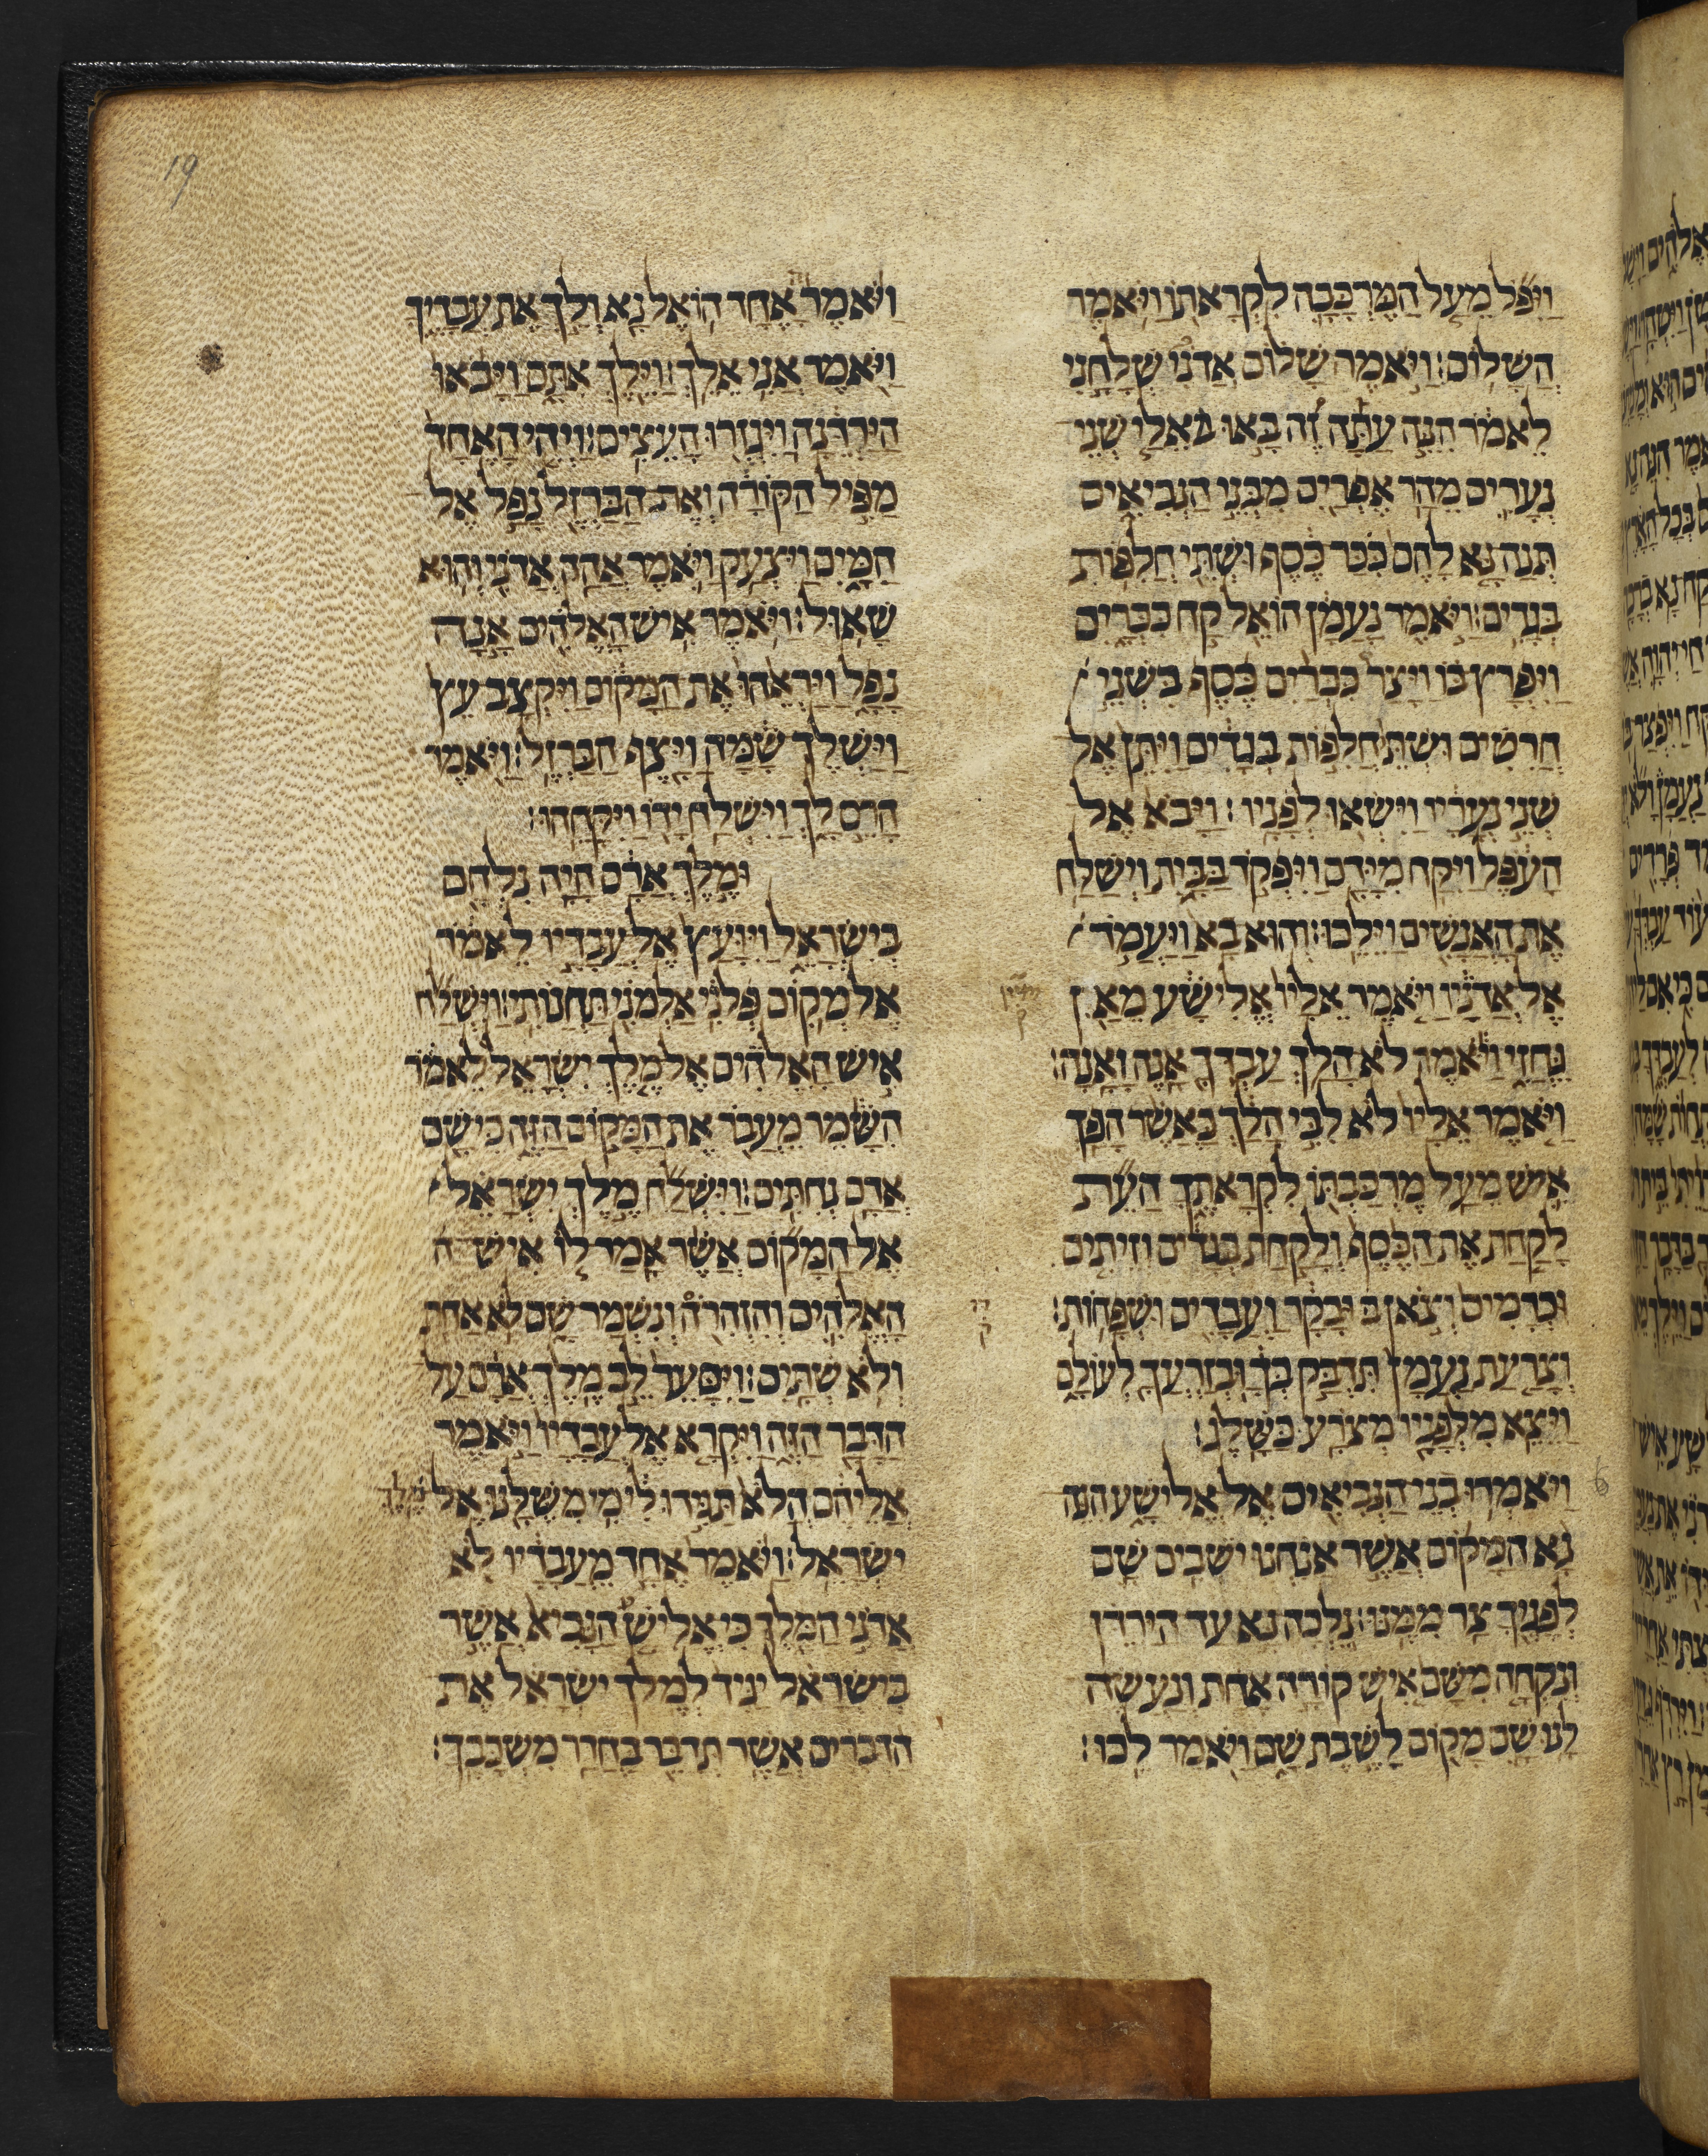 19
וַיִּפֹּל מֵעַל הַמֶּרְכָּבָה לִקְרָאתוֹ וַיֹּאמֶר
הֲשָׁלוֹם׃ וַיֹּאמֶר שָׁלוֹם אֲדֹנִי שְׁלָחַנִי
לֵאמֹר הִנֵּה עַתָּה זֶה בָּאוּ אֵלַי שְׁנֵי
נְעָרִים מֵהַר אֶפְרַיִם מִבְּנֵי הַנְּבִיאִים
תְּנָה נָּא לָהֶם כִּכַּר כֶּסֶף וּשְׁתֵּי חֲלִפוֹת
בְּגָדִים׃ וַיֹּאמֶר נַעֲמָן הוֹאֵל קַח כִּכָּרָיִם
וַיִּפְרָץ בּוֹ וַיָּצַר כִּכְּרַיִם כֶּסֶף בִּשְׁנֵי
חֲרִטִים וּשְׁתֵּי חֲלִפוֹת בְּגָדִים וַיִּתֵּן אֶל
שְׁנֵי נְעָרָיו וַיִּשְׂאוּ לְפָנָיו׃ וַיָּבֹא אֶל
הָעֹפֶל וַיִּקַּח מִיָּדָם וַיִּפְקֹד בַּבָּיִת וַיְשַׁלַּח
אֶת הָאֲנָשִׁים וַיֵּלֵכוּ׃ וְהוּא בָא וַיַּעֲמֹד
אֶל אֲדֹנָיו וַיֹּאמֶר אֵלָיו אֱלִישָׁע מֵאַן
גֵּחֲזִי וַיֹּאמֶר לֹא הָלַךְ עַבְדְּךָ אָנֶה וָאָנָה׃
וַיֹּאמֶר אֵלָיו לֹא לִבִּי הָלַךְ כַּאֲשֶׁר הָפַךְ
אִישׁ מֵעַל מֶרְכַּבְתּוֹ לִקְרָאתֶךָ הַעֵת
לָקַחַת אֶת הַכֶּסֶף וְלָקַחַת בְּגָדִים וְזֵיתִים
וּכְרָמִים וְצֹאן וּבָקָר וַעֲבָדִים וּשְׁפָחוֹת׃
וְצָרַעַת נַעֲמָן תִּדְבַּק בְּךָ וּבְזַרְעֲךָ לְעוֹלָם
וַיֵּצֵא מִלְּפָנָיו מְצֹרָע כַּשָּׁלֶג׃
וַיֹּאמְרוּ בְנֵי הַנְּבִיאִים אֶל אֱלִישָׁע הִנֵּה
נָא הַמָּקוֹם אֲשֶׁר אֲנַחְנוּ יֹשְׁבִים שָׁם
לְפָנֶיךָ צַר מִמֶּנּוּ׃ נֵלְכָה נָּא עַד הַיַּרְדֵּן
וְנִקְחָה מִשָּׁם אִישׁ קוֹרָה אֶחָת וְנַעֲשֶׂה
לָּנוּ שָׁם מָקוֹם לָשֶׁבֶת שָׁם וַיֹּאמֶר לֵכוּ׃
6
וַיֹּאמֶר הָאֶחָד הוֹאֶל נָא וְלֵךְ אֶת עֲבָדֶיךָ
וַיֹּאמֶר אֲנִי אֵלֵךְ׃ וַיֵּלֶךְ אִתָּם וַיָּבֹאוּ
הַיַּרְדֵּנָה וַיִּגְזְרוּ הָעֵצִים׃ וַיְהִי הָאֶחָד
מַפִּיל הַקּוֹרָה וְאֶת הַבַּרְזֶל נָפַל אֶל
הַמָּיִם וַיִּצְעַק וַיֹּאמֶר אֲהָהּ אֲדֹנִי וְהוּא
שָׁאוּל׃ וַיֹּאמֶר אִישׁ הָאֱלֹהִים אָנָה
נָפָל וַיַּרְאֵהוּ אֶת הַמָּקוֹם וַיִּקְצָב עֵץ
וַיַּשְׁלֶךְ שָׁמָּה וַיָּצֶף הַבַּרְזֶל׃ וַיֹּאמֶר
הָרֶם לָךְ וַיִּשְׁלַח יָדוֹ וַיִּקָּחֵהוּ׃
וּמֶלֶךְ אֲרָם הָיָה נִלְחָם
בְּיִשְׂרָאֵל וַיִּוָּעַץ אֶל עֲבָדָיו לֵאמֹר
אֶל מְקוֹם פְּלֹנִי אַלְמֹנִי תַּחֲנֹתִי׃ וַיִּשְׁלַח
אִישׁ הָאֱלֹהִים אֶל מֶלֶךְ יִשְׂרָאֵל לֵאמֹר
הִשָּׁמֶר מֵעֲבֹר אֶת הַמָּקוֹם הַזֶּה כִּי שָׁם
אֲרָם נְחִתִּים׃ וַיִּשְׁלַח מֶלֶךְ יִשְׂרָאֵל
אֶל הַמָּקוֹם אֲשֶׁר אָמַר לוֹ אִישׁ ה
הָאֱלֹהִים וְהִזְהִירֹה וְנִשְׁמַר שָׁם לֹא אַחַת
וְלֹא שְׁתָּיִם׃ וַיִּסָּעֵר לֵב מֶלֶךְ אֲרָם עַל
הַדָּבָר הַזֶּה וַיִּקְרָא אֶל עֲבָדָיו וַיֹּאמֶר
אֲלֵיהֶם הֲלֹא תַּגִּידוּ לִי מִי מִשֶּׁלָּנוּ אֶל מֶלֶךְ
יִשְׂרָאֵל׃ וַיֹּאמֶר אֶחָד מֵעֲבָדָיו לֹא
אֲדֹנִי הַמֶּלֶךְ כִּי אֱלִישָׁע הַנָּבִיא אֲשֶׁר
בְּיִשְׂרָאֵל יַגִּיד לְמֶלֶךְ יִשְׂרָאֵל אֶת
הַדְּבָרִים אֲשֶׁר תְּדַבֵּר בַּחֲדַר מִשְׁכָּבֶךָ׃